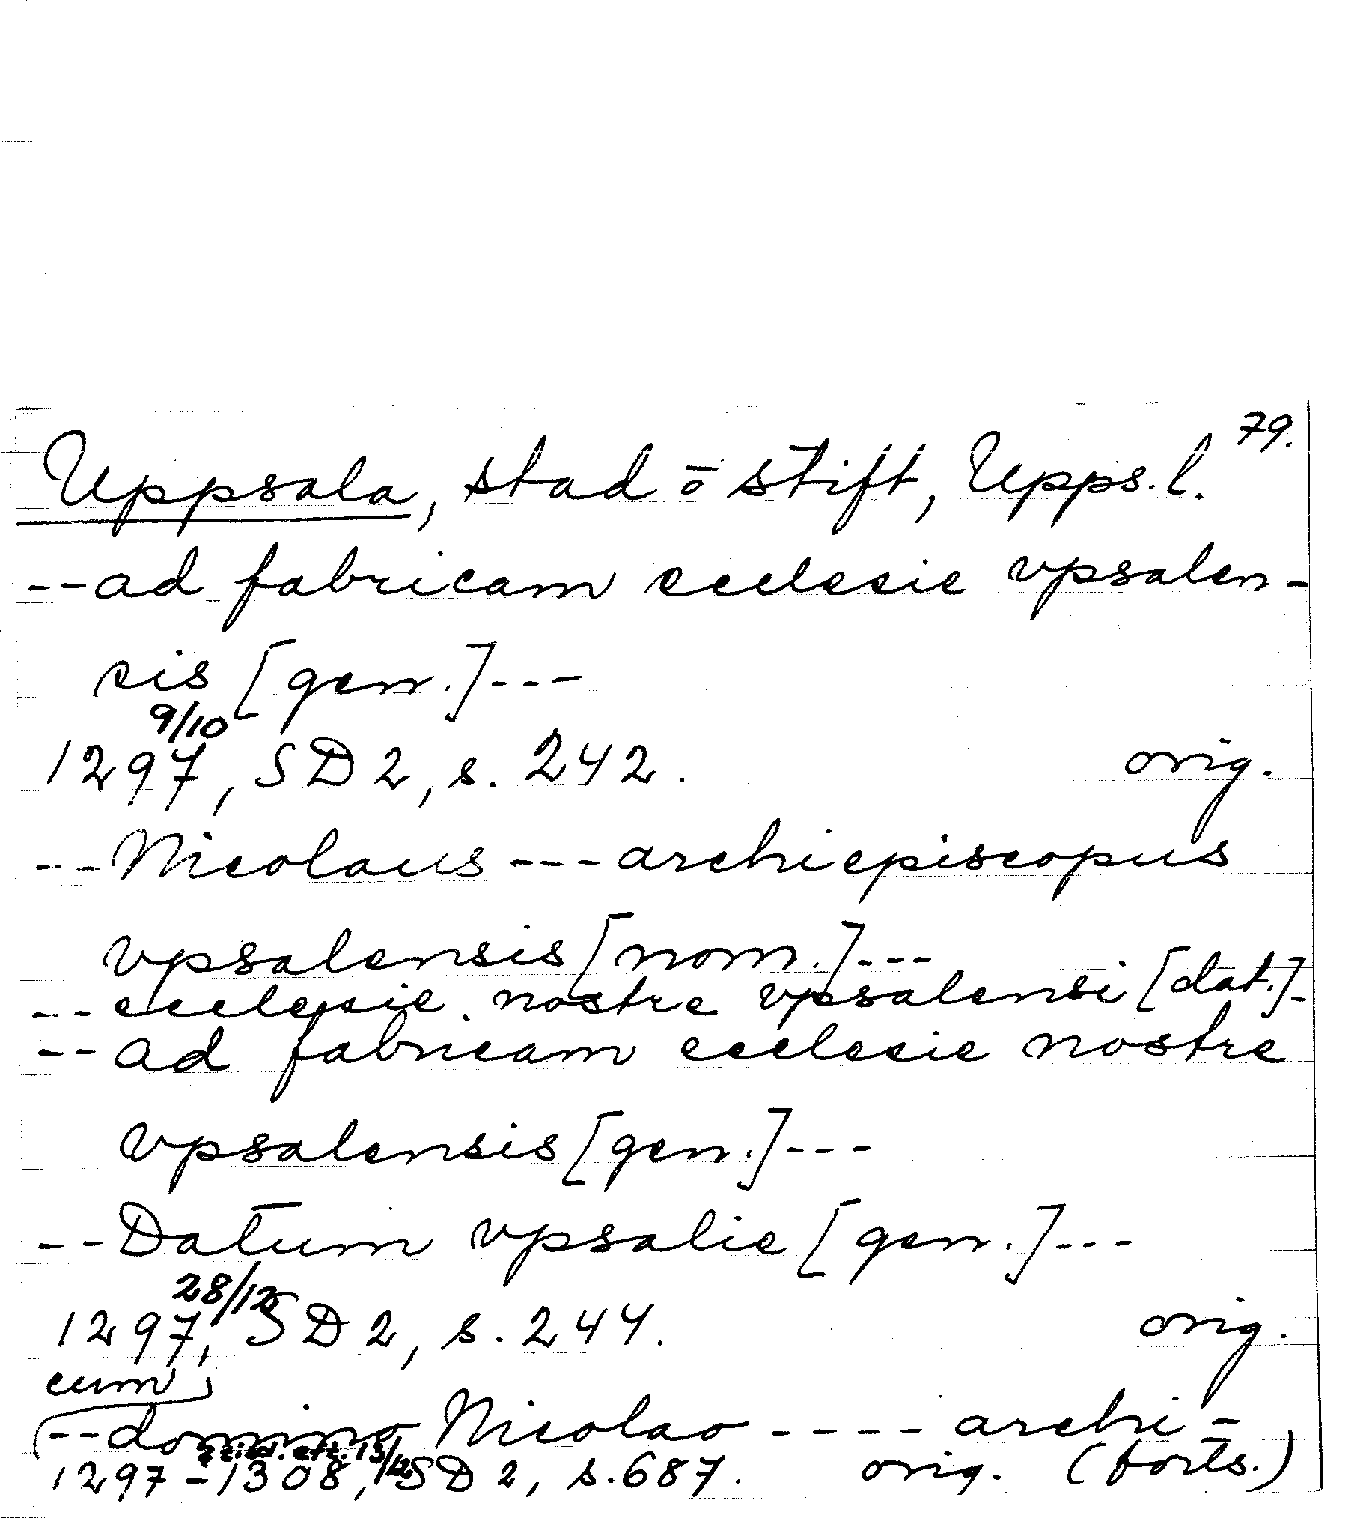 79.
Uppsala, stad o stift, Upps. l.
--ad fabricam ecclesie vpsalen-
sis [gen.]---
9/10
1297, SD 2, s. 242. orig.
--Nicolaus---archiepiscopus
vpsalensis [nom.]---
--ecclesie nostre vpsalensi [dat.]-
--ad fabricam ecclesie nostre
vpsalensis [gen.]---
--Datum vpsalie [gen.]---
28/12
1297, SD 2, s. 244. orig.
cum
--domino Nicolao ---- archi-
1297-1308, SD 2, s. 687. orig. (forts.)